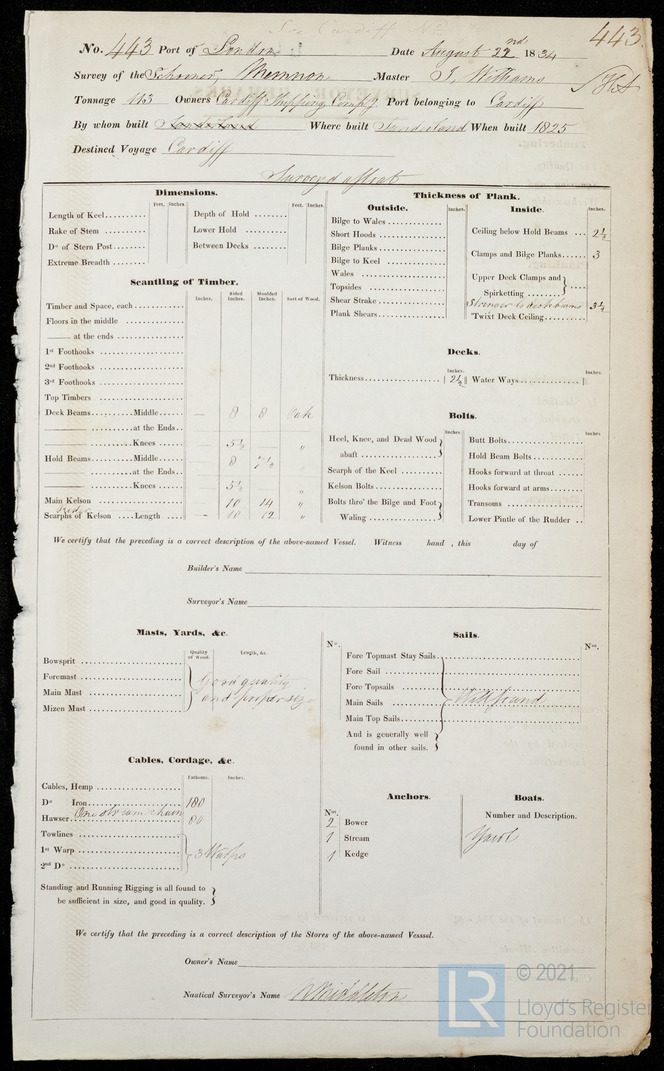 443
No. 443 Port of London Date August 22nd 1834
Survey of the Schooner, Memnon Master J. Williams
Tonnage 113 Owners Cardiff Shipping Compy Port belonging to Cardiff
By whom built Sunderland Where built Sunderland When built 1825
Destined Voyage Cardiff
Surveyed afloat
Dimensions.
Feet, Inches. Feet. Inches.
Length of Keel Depth of Hold
Rake of Stem Lower Hold
Do of Stern Post Between Decks
Extreme Breadth
Scantling of Timber.
Inches. Sided Inches. Moulded Inches. Sort of Wood.
Timber and Space, each
Floors in the middle
—— at the ends
1st Foothooks
2nd Foothooks
3rd Foothooks
Top Timbers
Deck Beams Middle — 8 8 Oak
—— at the Ends
—— Knees — 5½ — "
Hold Beams Middle 8 7½
—— at the Ends
—— Knees — 5½ "
Main Kelson 10 14 "
Scarphs of Kelson Length — 10 12 "
Thickness of Plank.
Outside. Inches.
Bilge to Wales
Short Hoods
Bilge Planks
Bilge to Keel
Wales
Topsides
Shear Strake
Plank Shears
Inside. Inches.
Ceiling below Hold Beams 2½
Clamps and Bilge Planks 3
Upper Deck Clamps and
Spirketting
Stringer to deck beams 3½
'Twixt Deck Ceiling
Decks.
Inches. Inches.
Thickness 2½ Water Ways
Bolts.
Inches Inches
Heel, Knee, and Dead Wood abaft
Scarph of the Keel
Kelson Bolts
Bolts thro' the Bilge and Foot Waling
Butt Bolts
Hold Beam Bolts
Hooks forward at throat
Hooks forward at arms
Transoms
Lower Pintle of the Rudder
We certify that the preceding is a correct description of the above-named Vessel. Witness hand , this day of
Builder's Name
Surveyor's Name
Masts, Yards, &c.
Quality of Wood. Length, &c.
Bowsprit
Foremast
Main Mast
Mizen Mast
Good quality
and proper size
Sails.
No. Nos.
Fore Topmast Stay Sails
Fore Sail
Fore Topsails
Main Sails Well found
Main Top Sails
And is generally well
found in other sails.
Cables, Cordage, &c.
Fathoms. Inches.
Cables, Hemp
Do Iron 180
Hawser One stream chain 80
Towlines
1st Warp 3 Warps
2nd Do
Standing and Running Rigging is all found to
be sufficient in size, and good in quality.
Anchors.
Nos.
2 Bower
1 Stream
1 Kedge
Boats.
Number and Description.
Yawl
We certify that the preceding is a correct description of the Stores of the above-named Vesssel.
Owner's Name
Nautical Surveyor's Name Middleton
LR © 2021
Lloyd's Register
Foundation